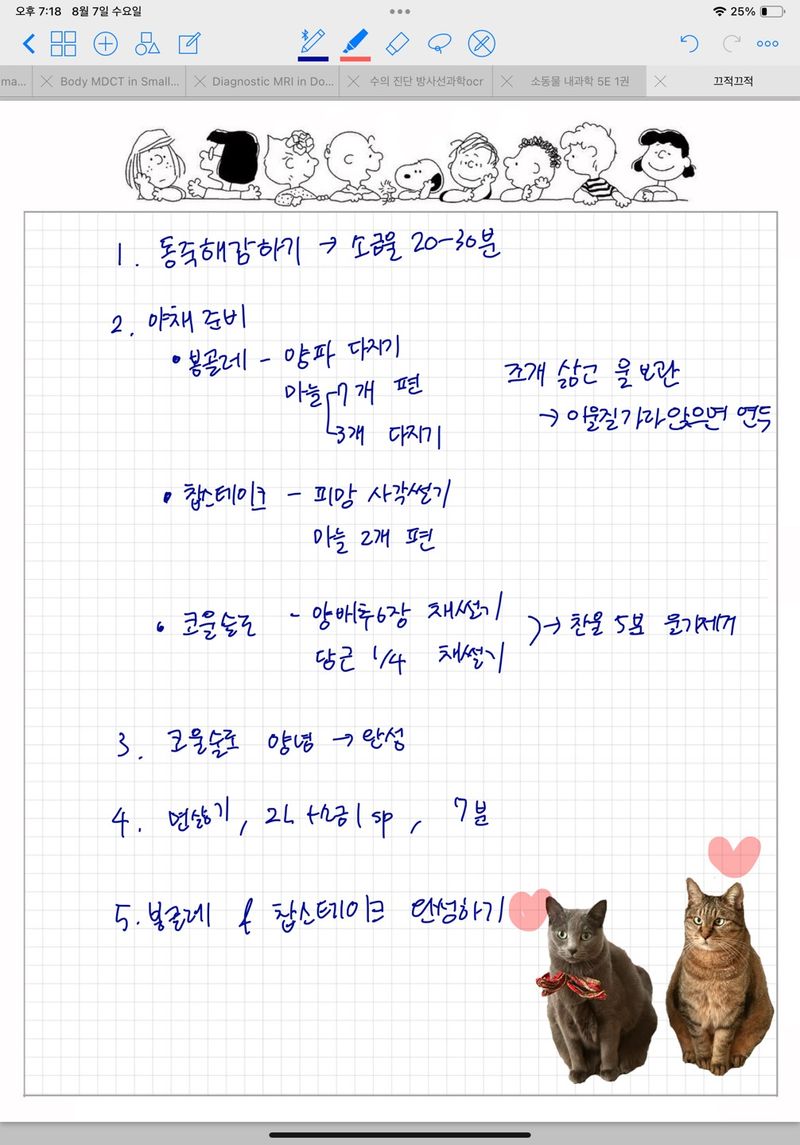 오후 7:18 8월 7일 수요일 25%
ma... Body MDCT in Small... Diagnostic MRI in Do... 수의 진단 방사선과학ocr 소동물 내과학 5E 1권 끄적끄적
1. 동죽해감하기 → 소금물 20-30분
2. 야채 준비
• 봉골레 - 양파 다지기
마늘 7개 편
3개 다지기
조개 삶고 물 보관
→ 이물질 가라앉으면 연두
• 찹스테이크 - 피망 사각썰기
마늘 2개 편
• 코울슬로 - 양배추 6장 채썰기
당근 1/4 채썰기
→ 찬물 5분 물기제거
3. 코울슬로 양념 → 완성
4. 면삶기, 2L +소금 1sp, 7분
5. 봉골레 & 찹스테이크 완성하기